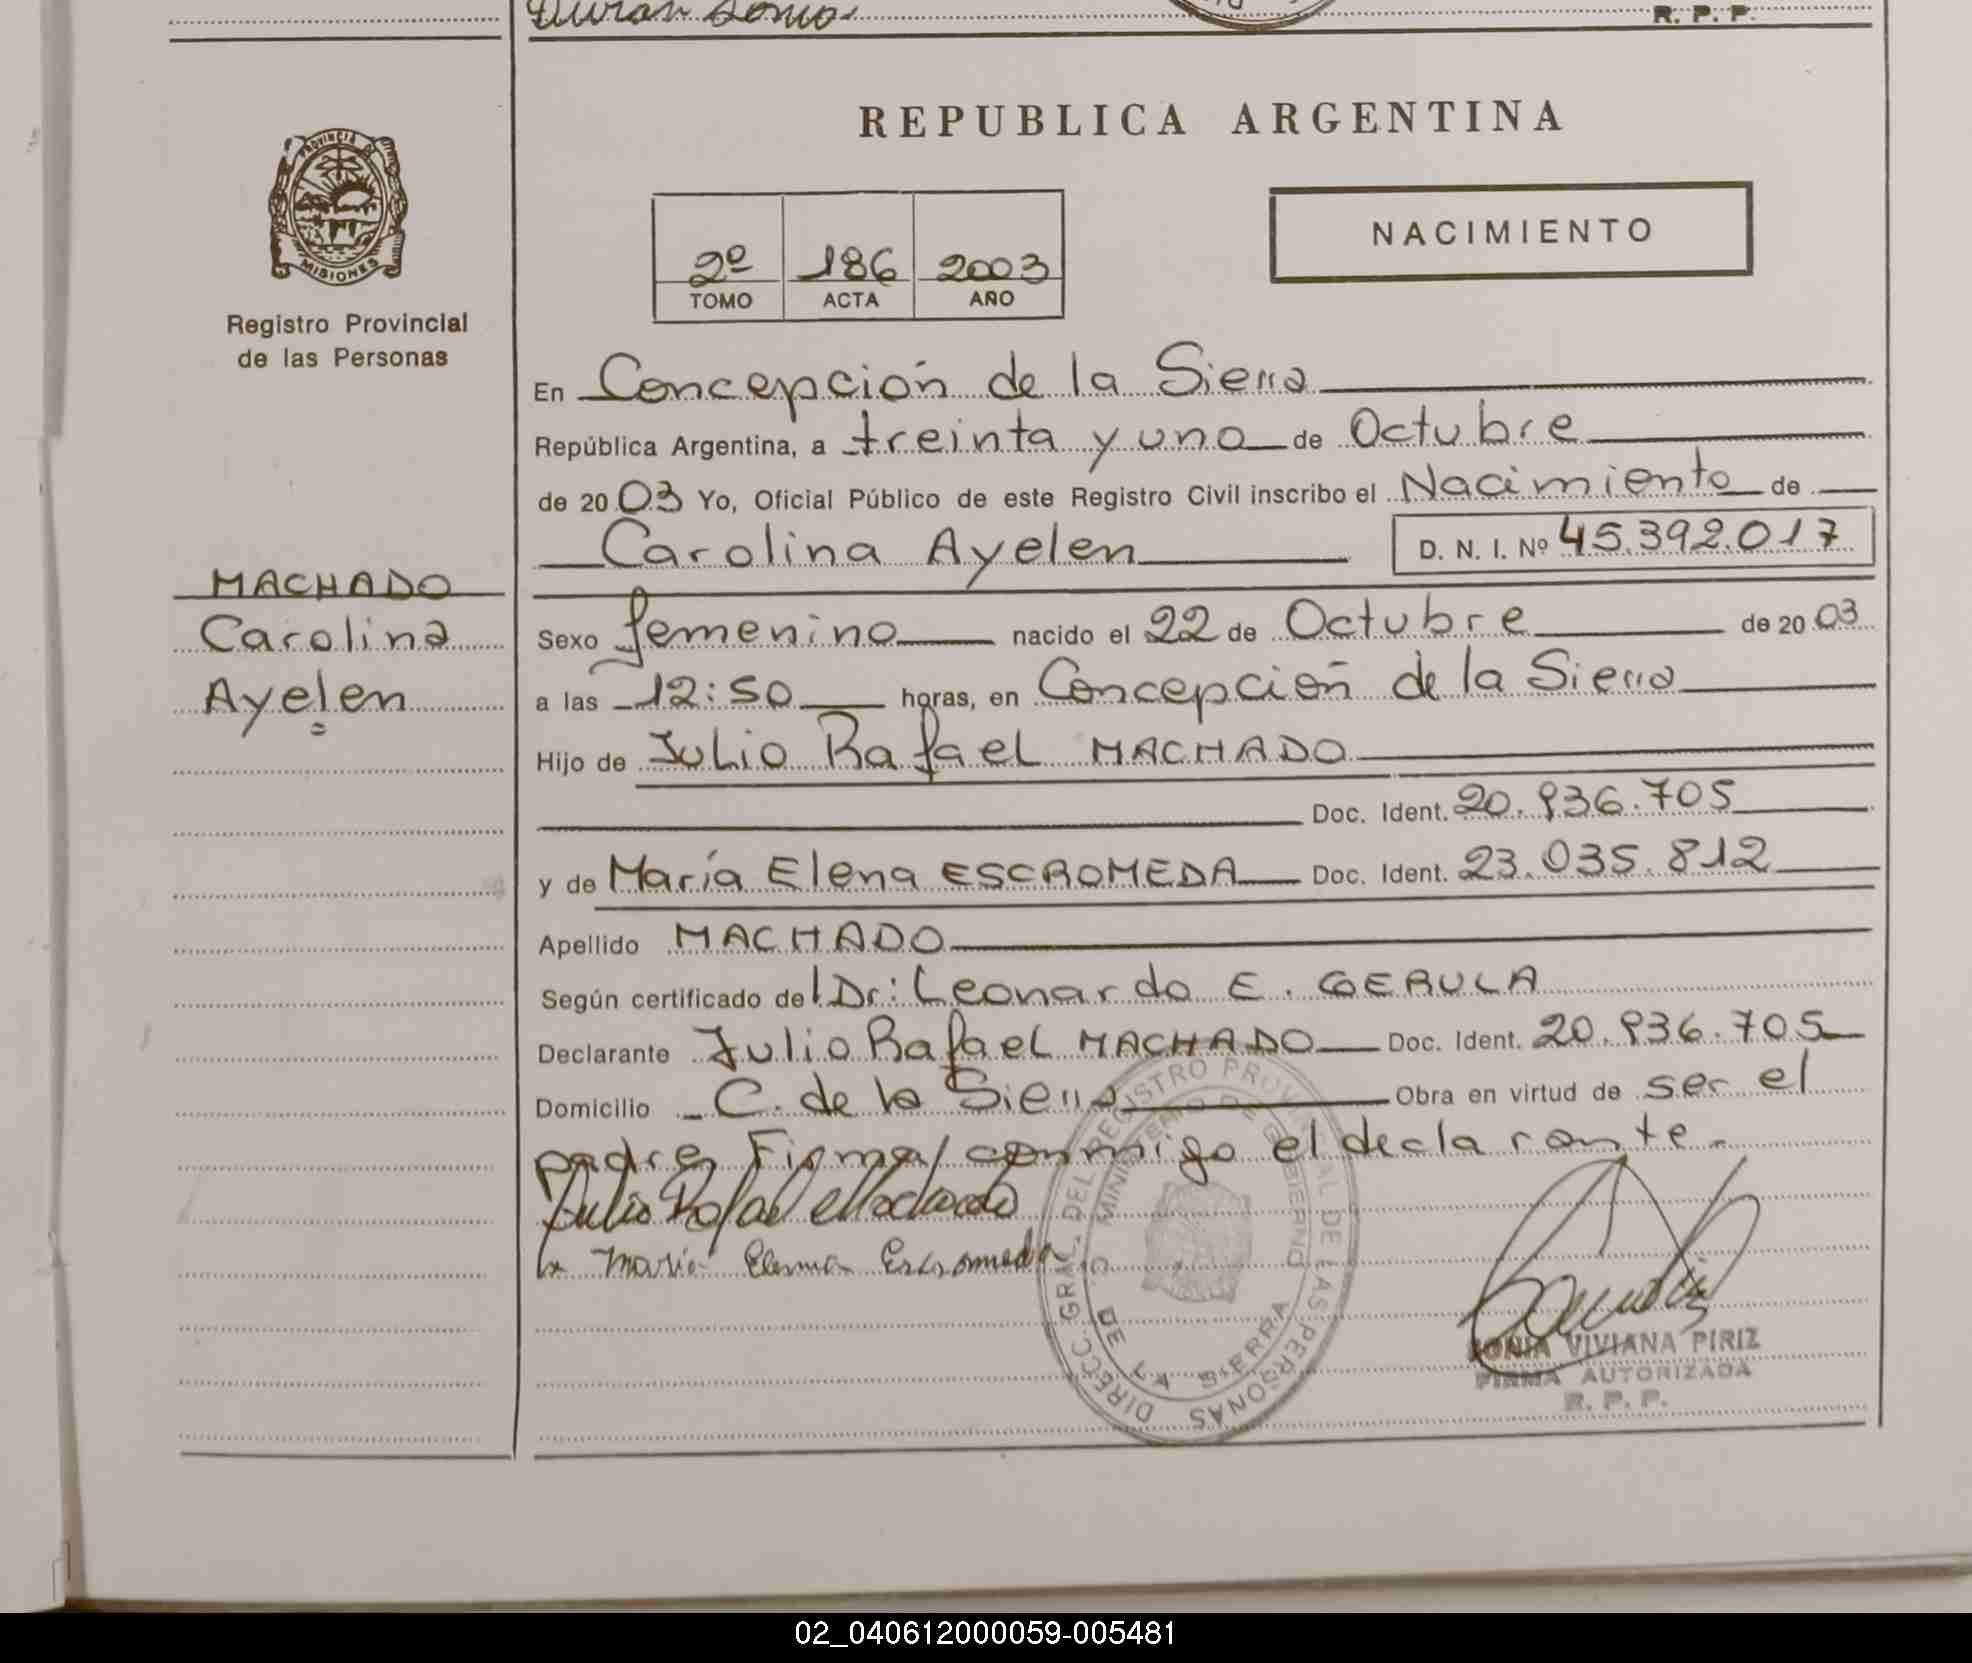 R. P. P.
PROVINCIA DE
MISIONES
Registro Provincial
de las Personas
MACHADO
Carolina
Ayelen
REPUBLICA ARGENTINA
2º 186 2003
TOMO ACTA AÑO
NACIMIENTO
En Concepción de la Sierra
República Argentina, a treinta y uno de Octubre
de 2003 Yo, Oficial Público de este Registro Civil inscribo el Nacimiento de
Carolina Ayelen D. N. I. Nº 45.392.017
Sexo femenino nacido el 22 de Octubre de 2003
a las 12:50 horas, en Concepción de la Sierra
Hijo de Julio Rafael MACHADO
Doc. Ident. 20.936.705
y de María Elena ESCROMEDA Doc. Ident. 23.035.812
Apellido MACHADO
Según certificado del Dr: Leonardo E. GERULA
Declarante Julio Rafael MACHADO Doc. Ident. 20.936.705
Domicilio C. de la Sierra Obra en virtud de ser el
padre, Firma conmigo el declarante.
Julio Rafael Machado
María Elena Escromeda
DIRECC. GRAL. DEL REGISTRO PROVINCIAL DE LAS PERSONAS
MINISTERIO DE GOBIERNO
C. DE LA SIERRA
SONIA VIVIANA PIRIZ
FIRMA AUTORIZADA
R. P. P.
02_040612000059-005481